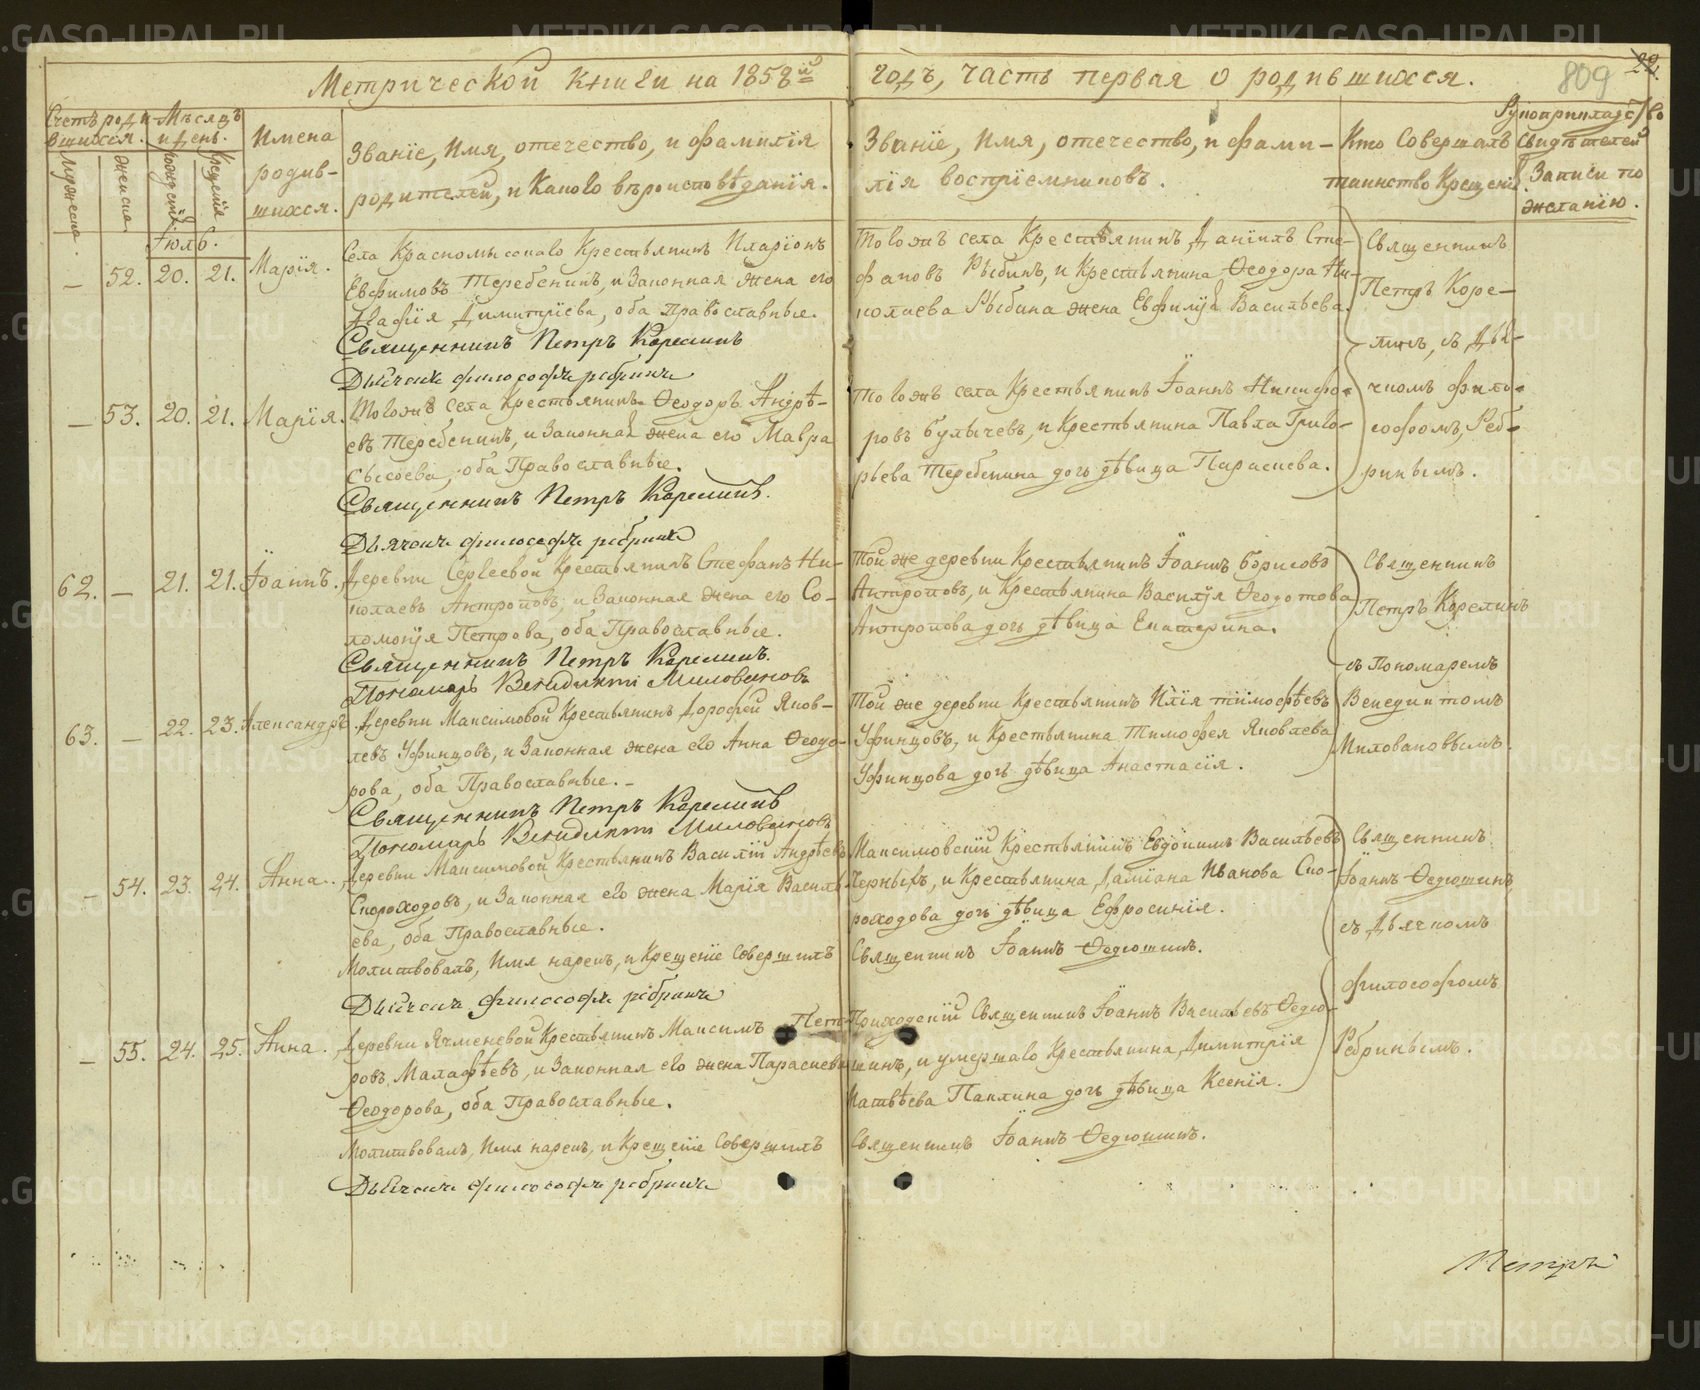 Метрической книги на 1858й годъ, часть первая о родившихся.
809
22.
Счетъ родившихся.
Мужеска
Женска
Мѣсяцъ и день.
рожденія
Крещенія
Имена родившихся.
Званіе, Имя, отечество, и фамилія
родителей, и Какого вѣроисповѣданія.
Званіе, Имя, отечество, и фами-
лія воспріемниковъ.
Кто Совершалъ
таинство Крещенія.
Рукоприкладство
Свидѣтелей
Записи по
желанію.
Іюль.
– 52. 20. 21. Марія.
Села Краснояьского Крестьянинъ Иларіонъ
Евфимовъ Теребенинъ, и Законная Жена его
Агафія Димитріева, оба Православные.
Священникъ Петръ Корелинъ
Дьячекъ философъ ребринъ
Тогожъ села Крестьянинъ Даніилъ Сте-
фановъ Рыбинъ, и Крестьянина Ѳеодора Ни-
колаева Рыбина жена Евфимія Васильева.
Священникъ
Петръ Коре-
линъ, съ Дья-
чкомъ Фило-
софомъ, Реб-
ринымъ.
– 53. 20. 21. Марія.
Тогожъ села Крестьянинъ Ѳеодоръ Андрѣ-
евъ Теребенинъ, и Законная жена его Мавра
Сысоева, оба Православные.
Священникъ Петръ Корелинъ.
Дьячекъ философъ ребринъ
Тогожъ села Крестьянинъ Іоаннъ Никифо-
ровъ Булычевъ, и Крестьянина Павла Григо-
рьева Теребенина дочь дѣвица Параскева.
62. – 21. 21. Іоаннъ.
Деревни Сергеевой Крестьянинъ Стефанъ Ни-
колаевъ Антроповъ, и Законная Жена его Со-
ломонія Петрова, оба Православные.
Священникъ Петръ Корелинъ.
Пономарь Венидиктъ Миловановъ
Той же деревни Крестьянинъ Іоаннъ Борисовъ
Антроповъ, и Крестьянина Василія Ѳеодотова
Антропова дочь дѣвица Екатерина.
Священникъ
Петръ Корелинъ
съ Пономаремъ
Венедиктомъ
Миловановымъ.
63. – 22. 23. Александръ.
Деревни Максимовой Крестьянинъ Дорофей Яков-
левъ Уфинцовъ, и Законная жена его Анна Ѳеодо-
рова, оба Православные. –
Священникъ Петръ Корелинъ
Пономарь Венидиктъ Миловановъ
Той же деревни Крестьянинъ Илія Тимофѣевъ
Уфинцовъ, и Крестьянина Тимофея Яковлева
Уфинцова дочь дѣвица Анастасія.
– 54. 23. 24. Анна.
Деревни Максимовой Крестьянинъ Василій Андрѣевъ
Скороходовъ, и Законная его жена Марія Василь-
ева, оба Православные.
Молитвовалъ, Имя нарекъ, и Крещеніе Совершилъ
Дьячекъ философъ ребринъ
Максимовскій Крестьянинъ Евдокимъ Васильевъ
Черныхъ, и Крестьянина Даміана Иванова Ско-
роходова дочь дѣвица Ефросинія.
Священникъ Іоаннъ Ѳедюшинъ.
Священникъ
Іоаннъ Ѳедюшинъ
съ Дьячкомъ
философомъ
Ребринымъ.
– 55. 24. 25. Анна.
Деревни Ячменевой Крестьянинъ Максимъ Пет-
ровъ Малафѣевъ, и Законная его жена Параскева
Ѳеодорова, оба Православные.
Молитвовалъ, Имя нарекъ, и Крещеніе Совершилъ
Дьячекъ философъ ребринъ
Приходскій Священникъ Іоаннъ Васильевъ Ѳедю-
шинъ, и умершаго Крестьянина Димитрія
Матвѣева Паклина дочь дѣвица Ксенія.
Священникъ Іоаннъ Ѳедюшинъ.
Петръ
METRIKI.GASO-URAL.RU